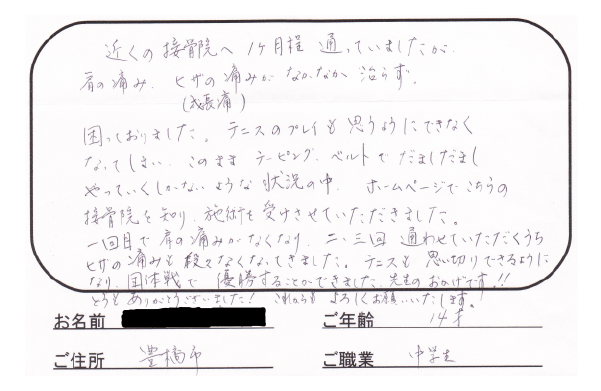 近くの接骨院へ 1ヶ月程 通っていましたが、
肩の痛み、ヒザの痛みが なかなか 治らず、
(成長痛)
困っておりました。テニスのプレイも 思うようにできなく
なってしまい、このまま テーピング、ベルトで だましだまし
やっていくしかないような 状況の中、ホームページで こちらの
接骨院を知り、施術を受けさせていただきました。
一回目で 肩の痛みがなくなり、二、三回 通わせていただくうち
ヒザの痛みも 段々なくなってきました。テニスも 思い切りできるように
なり、団体戦で 優勝することができました。先生のおかげです!!
どうもありがとうございました! これからも よろしくお願いいたします。
お名前 ご年齢 14才
ご住所 豊橋市 ご職業 中学生